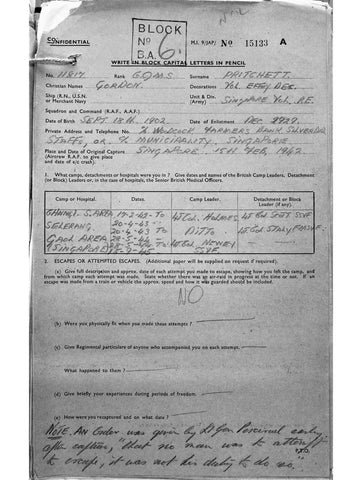 N/2
BLOCK
No 6.
B.A.
CONFIDENTIAL
M.I. 9/JAP/ No 15133 A
WRITE IN BLOCK CAPITAL LETTERS IN PENCIL
No. 11817 Rank C.Q.M.S. Surname PRITCHETT
Christian Names GORDON. Decorations Vol. EFFCY DEC.
Ship (R.N., U.S.N. or Merchant Navy Unit & Div. (Army) SINGAPORE Vol. R.E.
Squadron and Command (R.A.F., A.A.F.)
Date of Birth SEPT 18th, 1902 Date of Enlistment DEC. 1929.
Private Address and Telephone No. c/o WOODCOCK FARMERS BANK
STAFFS, OR. c/o MUNICIPALITY, SINGAPORE
Place and Date of Original Capture SINGAPORE 15TH FEB, 1942.
(Aircrew R.A.F. to give place
and date of a/c crash).
1. What camps, detachments or hospitals were you in? Give dates and names of the British Camp Leaders, Detachment
(or Block) Leaders or, in the case of hospitals, the senior British Medical Officers.
Camp or Hospital. Dates. Camp Leader. Detachment or Block
Leader (if any).
CHANGI. S. AREA 17-2-42 TO Lt Col. HOLMES Lt Col
SELERANG. 20-4-43 DITTO Lt Col
GAOL AREA
(SINGAPORE)
2. ESCAPES OR ATTEMPTED ESCAPES. (Additional paper will be supplied on request if required).
(a) Give full description and approx. date of each attempt you made to escape, showing how you left the camp, and
from which camp each attempt was made. State whether there was an air-raid in progress at this time or not. If an
escape was made from a train or vehicle the approx. speed and how it was guarded should be included.
NO
(b) Were you physically fit when you made these attempts?
(c) Give Regimental particulars of anyone who accompanied you on each attempt.
What happened to them?
(d) Give briefly your experiences during periods of freedom.
(e) How were you recaptured and on what date?
NOTE. An Order was given by Lt Gen Percival early
after capture, "that no man was to attempt
to escape, it was not his duty to do so."
P.T.O.